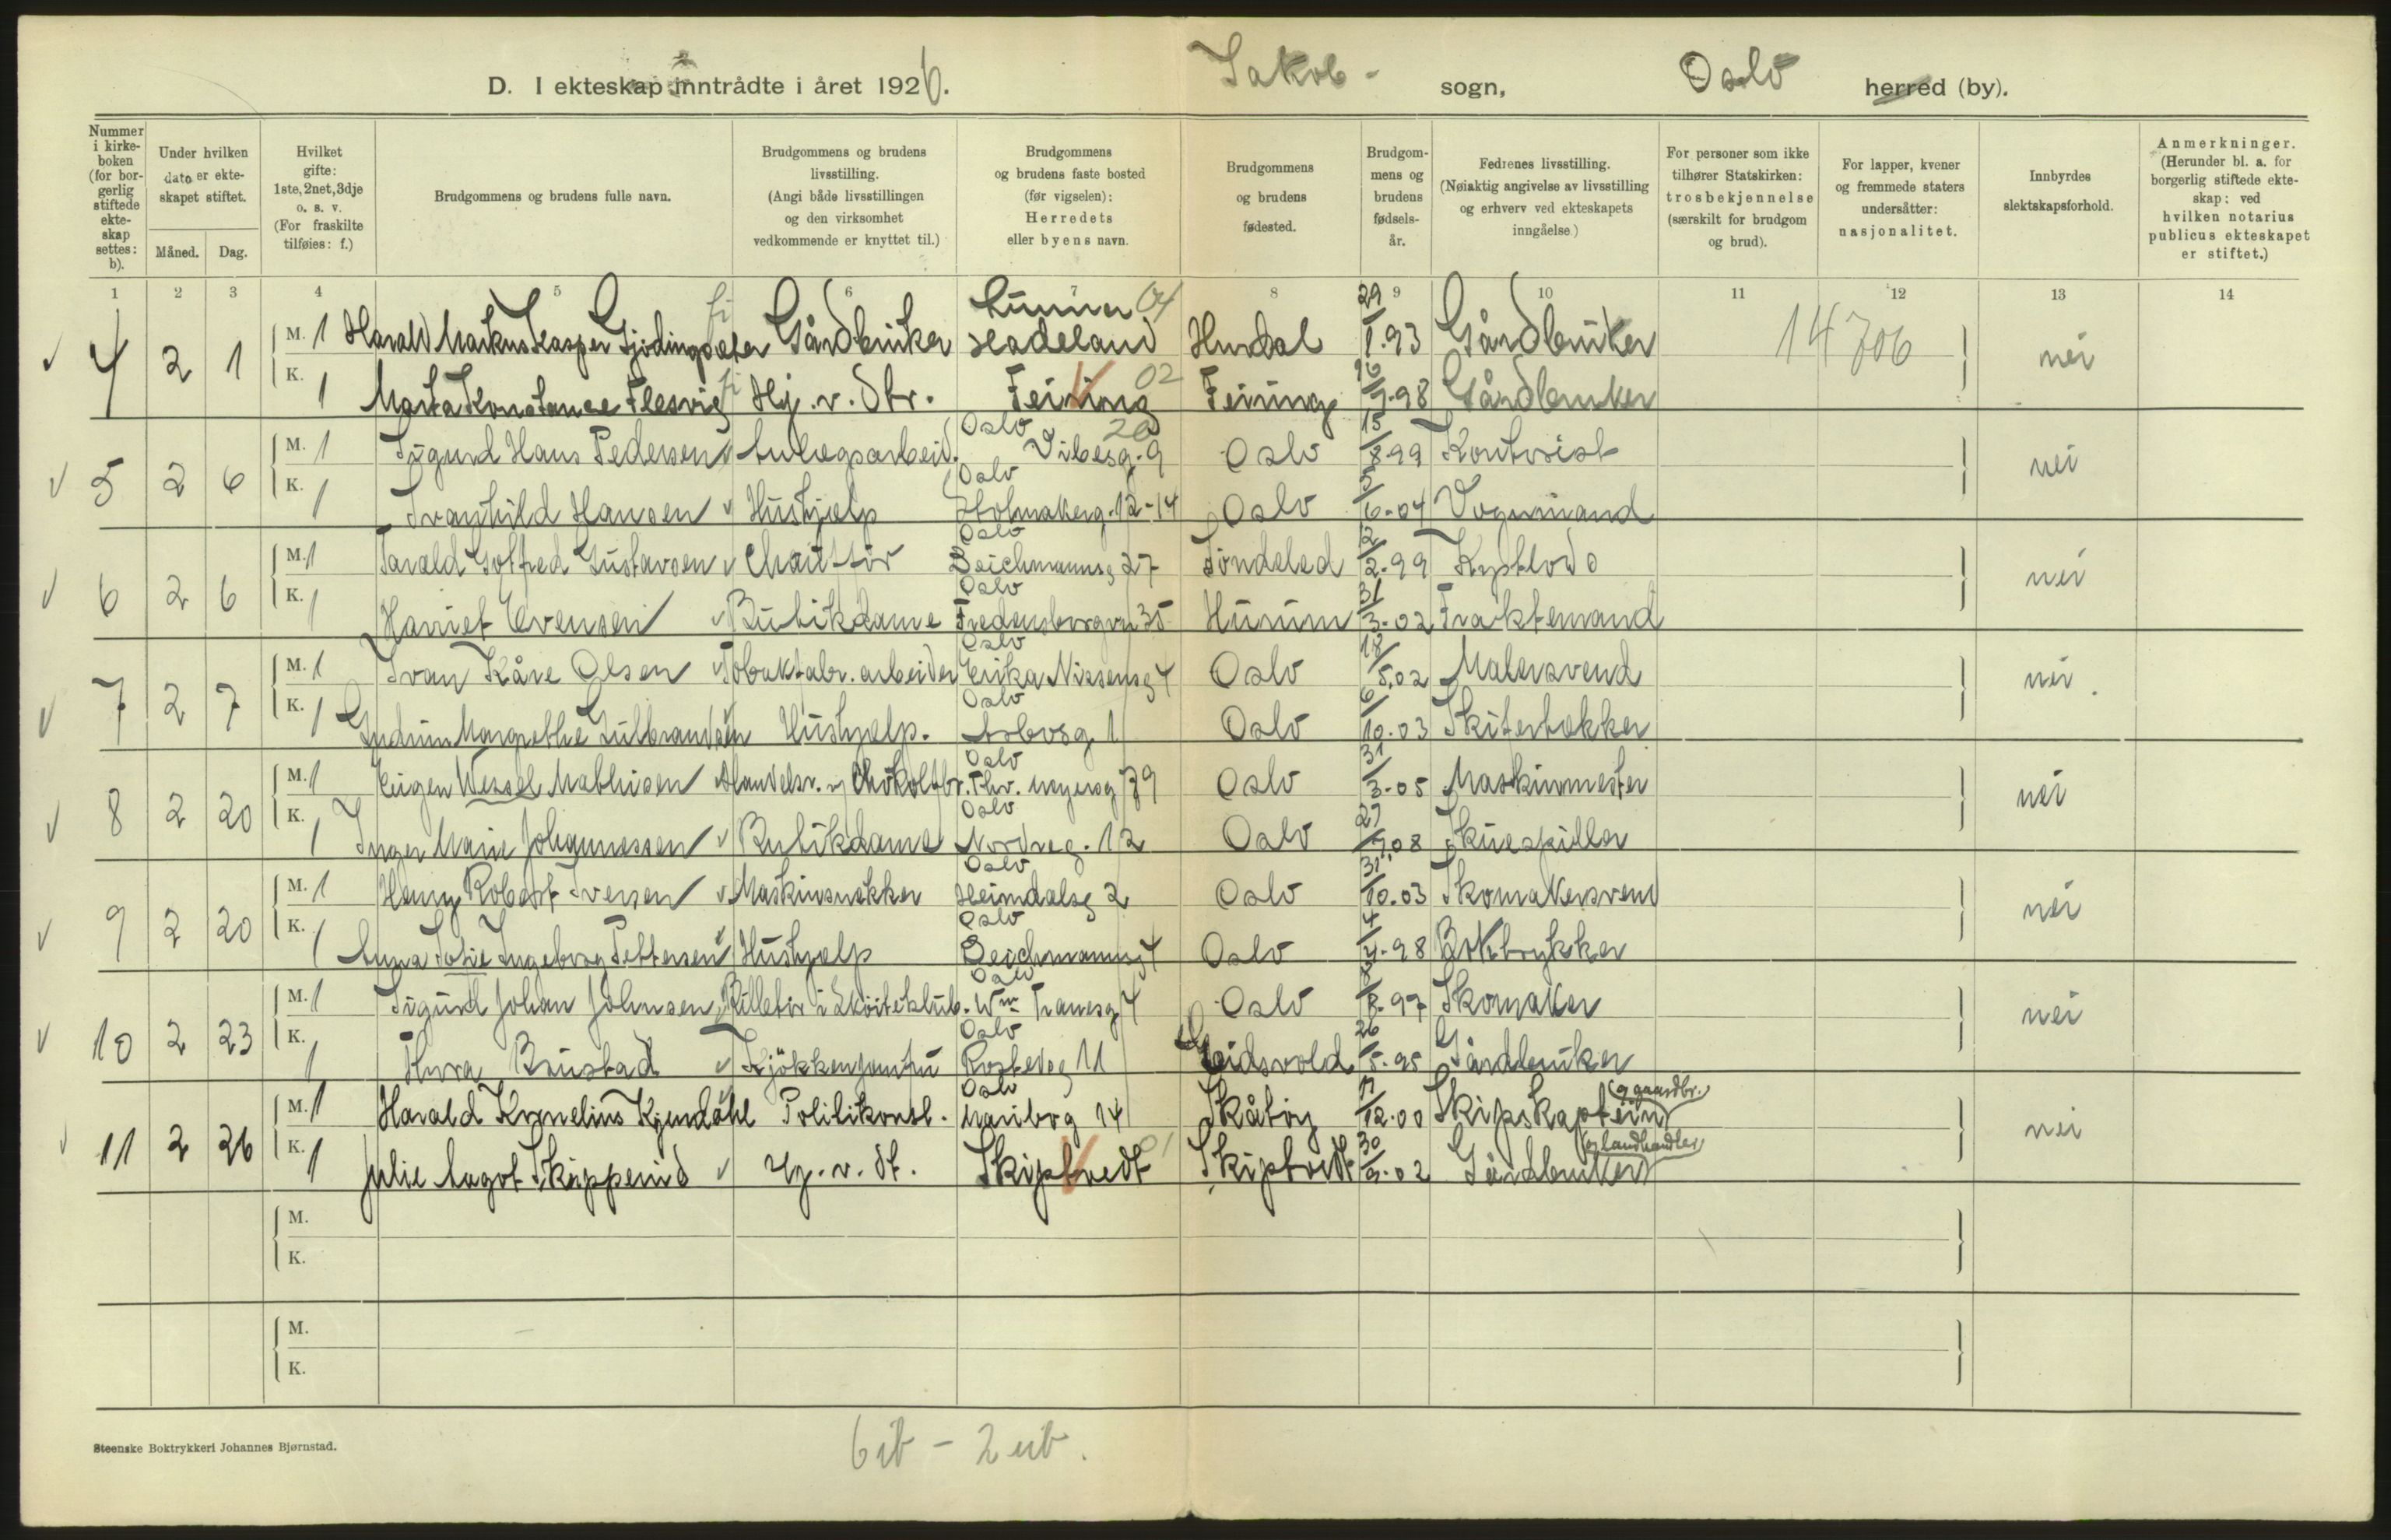 D. I ekteskap inntrådte i året 1926. Jakob - sogn, Oslo herred (by).
Nummer i kirke-boken (for bor-gerlig stiftede ekte-skap settes: b).
Under hvilken dato er ekte-skapet stiftet.
Måned. Dag.
Hvilket gifte: 1ste, 2net, 3dje o. s. v. (For fraskilte tilføies: f.)
Brudgommens og brudens fulle navn.
Brudgommens og brudens livsstilling. (Angi både livsstillingen og den virksomhet vedkommende er knyttet til.)
Brudgommens og brudens faste bosted (før vigselen): Herredets eller byens navn.
Brudgommens og brudens fødested.
Brudgom-mens og brudens fødsels-år.
Fedrenes livsstilling. (Nøiaktig angivelse av livsstilling og erhverv ved ekteskapets inngåelse)
For personer som ikke tilhører Statskirken: trosbekjennelse (særskilt for brudgom og brud).
For lapper, kvener og fremmede staters undersåtter: nasjonalitet.
Innbyrdes slektskapsforhold.
Anmerkninger. (Herunder bl. a. for borgerlig stiftede ekte-skap: ved hvilken notarius publicus ekteskapet er stiftet.)
1 2 3 4 5 6 7 8 9 10 11 12 13 14
4 2 1 M. 1 Harald Markus Kasper Gårdbruker Lunner Hadeland 04 Hurdal 29/1.93 Gårdbruker 14706 nei
K. 1 Marta Konstanse Flesvig Hj. v. Feiring 02 Feiring 98 Gårdbruker
5 2 6 M. 1 Sigurd Hans Pedersen Oslo Vibesg. 9 20 Oslo 15/8.99 Kontorist nei
K. 1 Svanhild Hansen Hushjelp Oslo Holmskerg. 12-14 Oslo 6.04 Vognmand
6 2 6 M. 1 Tarald Gotfred Gustavsen Oslo Deichmannsg 27 Søndeled 2.99 nei
K. 1 Harriet Evensen Butikdame Oslo Fredensborgvn 35 Hurum 31/3.02
7 2 7 M. 1 Ivan Kåre Olsen Tobakfabr. arbeider Oslo Erika Nissensg 4 Oslo 18/5.02 Malersvend nei.
K. 1 Gudrun Margrethe Gulbrandsen Hushjelp. Oslo 1 Oslo 6/10.03 Skifertekker
8 2 20 M. 1 Eugen Wessel Mathisen Oslo Thv. Meyersg 79 Oslo 31/3.05 Maskinmester nei
K. 1 Inger Marie Johannessen Butikdame Oslo Nordreg. 12 Oslo 08 Skuespiller
9 2 20 M. 1 Henry Robert Iversen Maskinsnekker Oslo Heimdalsg 2 Oslo 31/10.03 Skomakersvend nei
K. 1 Anna Sofie Ingeborg Pettersen Hushjelp Oslo Deichmannsg 4 Oslo 98 Boktrykker
10 2 23 M. 1 Sigurd Johan Johnsen Billetør i Skøiteklub. Oslo Wm Tranesg 4 Oslo 8.97 Skomaker nei
K. 1 Thora Brustad Kjøkkenjomfru Oslo Rostedsg 11 Eidsvold 26/5.95 Gårdbruker
11 2 26 M. 1 Harald Kornelius Kjendahl Politikonst. Oslo Maribog 14 Skåtøy 12.00 Skipskaptein (g gaardbr.) nei
K. 1 Julie Aagot Skipperud Hj. v. St. Skiptvedt 01 Skiptvedt 30/9.02 Gårdbruker (og landhandler)
M.
K.
M.
K.
Steenske Boktrykkeri Johannes Bjørnstad.
6 ib - 2 ub.